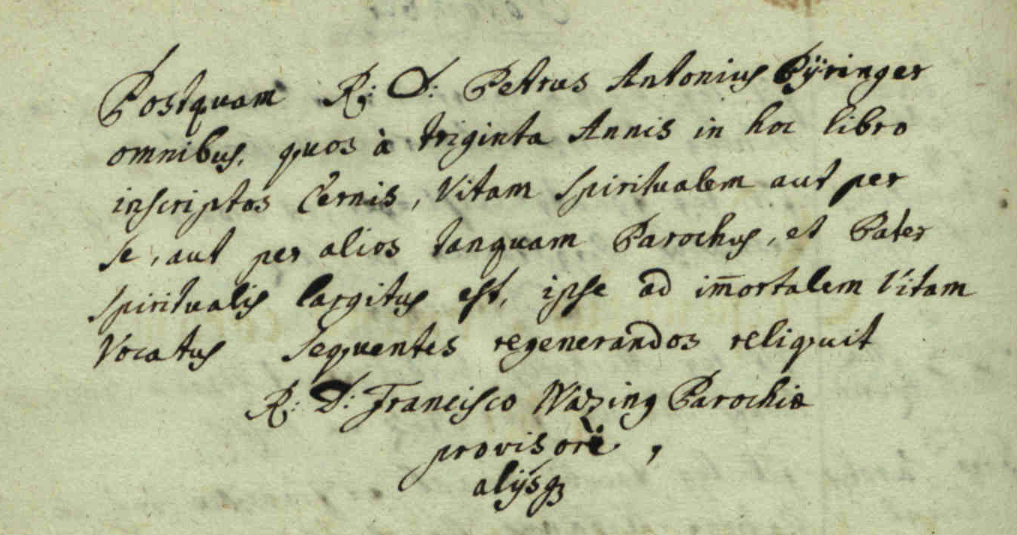 Postquam R: D: Petrus Antonius Pÿringer
omnibus, quos à triginta Annis in hoc libro
inscriptos Cernis, Vitam spiritualem aut per
se, aut per alios tanquam Parochus, et Pater
spiritualis largitus est, ipse ad im̄ortalem Vitam
Vocatus sequentes regenerandos reliquit
R: D: Francisco Wazing Parochiæ
provisore,
alÿsq3